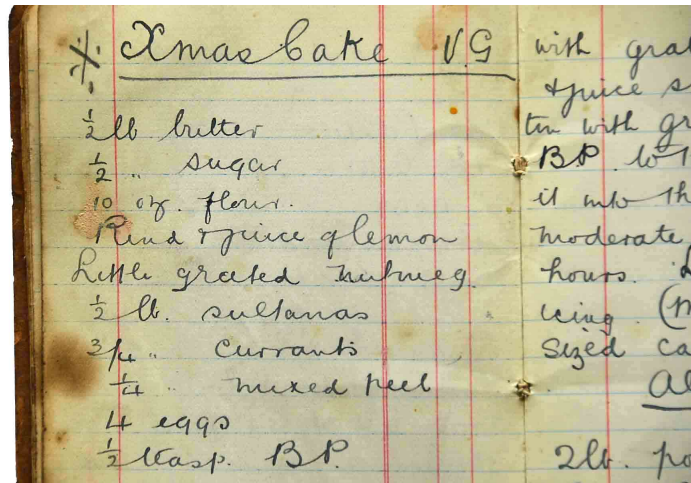 Xmas Cake V.G
1/2 lb butter
1/2 " sugar
10 oz. flour.
Rind & juice of lemon
Little grated nutmeg.
1/2 lb. sultanas
3/4 " currants
1/4 " mixed peel
4 eggs
1/2 teasp. B.P.
with
& juice
tin with
B.P. to
it into
moderate
hours.
icing
sized
2 lb.